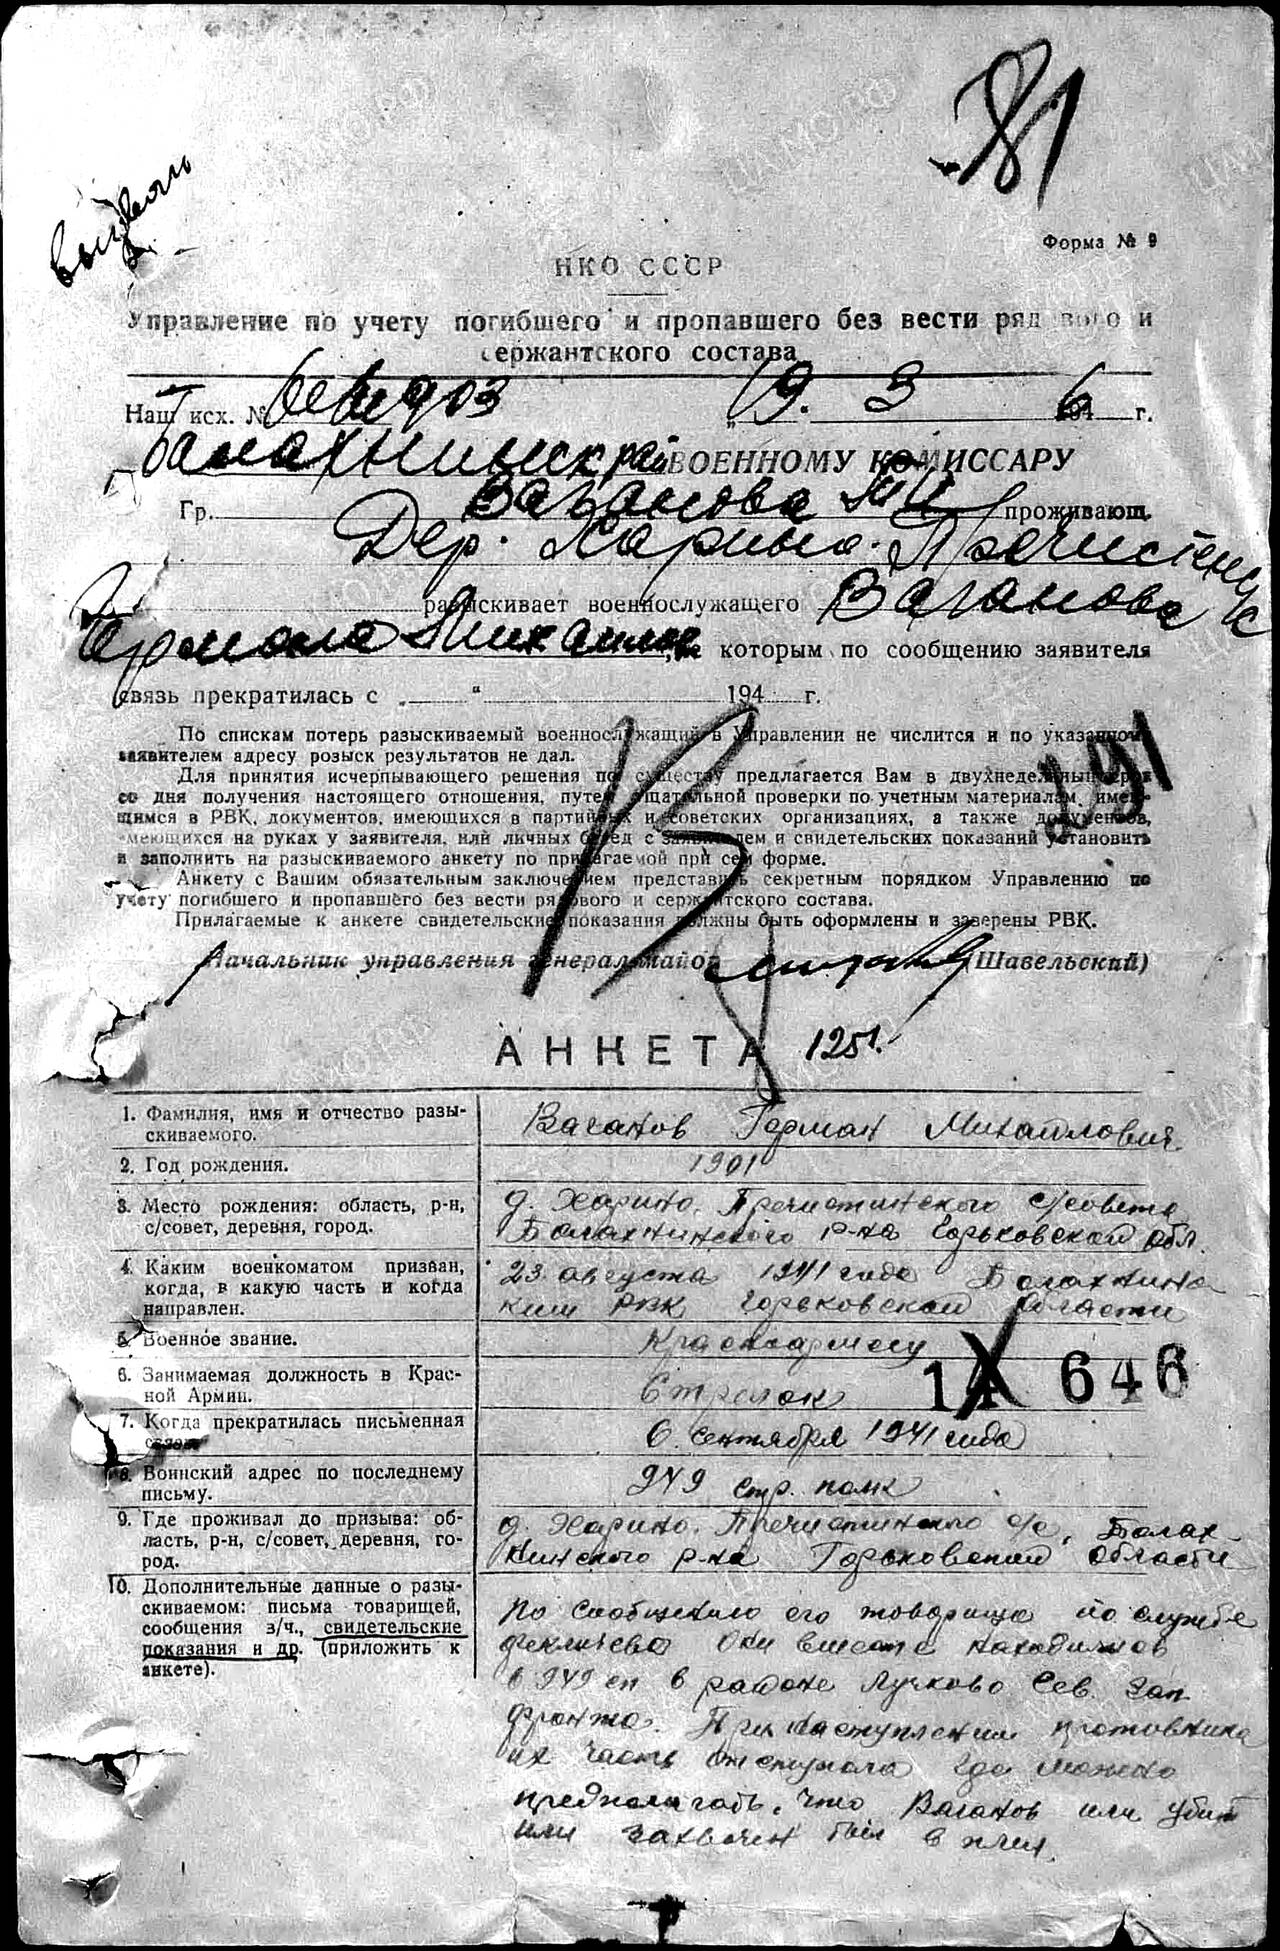 81
Форма № 9
НКО СССР
Управление по учету погибшего и пропавшего без вести рядового и
сержантского состава
Наш исх. № 903 „19. 3 1946 г.
Балахнинск рай ВОЕННОМУ КОМИССАРУ
Гр. Ваганова М И проживающ.
Дер. Харино. Пречистенск
с/с разыскивает военнослужащего Ваганова
Германа Михайлов с которым по сообщению заявителя
связь прекратилась с „ “ 194 г.
По спискам потерь разыскиваемый военнослужащий в Управлении не числится и по указанному
заявителем адресу розыск результатов не дал.
Для принятия исчерпывающего решения по существу предлагается Вам в двухнедельный срок
со дня получения настоящего отношения, путем тщательной проверки по учетным материалам, имею-
щимся в РВК, документов, имеющихся в партийных и советских организациях, а также документов,
имеющихся на руках у заявителя, или личных бесед с заявителем и свидетельских показаний установить
и заполнить на разыскиваемого анкету по прилагаемой при сем форме.
291
Анкету с Вашим обязательным заключением представить секретным порядком Управлению по
учету погибшего и пропавшего без вести рядового и сержантского состава.
Прилагаемые к анкете свидетельские показания должны быть оформлены и заверены РВК.
Начальник управления генерал-майор (Шавельский)
АНКЕТА 1251.
1. Фамилия, имя и отчество разы-
скиваемого.
Ваганов Герман Михайлович
2. Год рождения.
1901
3. Место рождения: область, р-н,
с/совет, деревня, город.
д. Харино. Пречистинского с/совета
Балахнинского р-на Горьковской обл.
4. Каким военкоматом призван,
когда, в какую часть и когда
направлен.
23 августа 1941 года Балахнинс
ким РВК Горьковской области
5. Военное звание.
Красноармеец
6. Занимаемая должность в Крас-
ной Армии.
Стрелок
14 646
7. Когда прекратилась письменная
связь
6. сентября 1941 года
8. Воинский адрес по последнему
письму.
949 стр. полк
9. Где проживал до призыва: об-
ласть, р-н, с/совет, деревня, го-
род.
д. Харино. Пречистинского с/с, Балах-
нинского р-на Горьковской области
10. Дополнительные данные о разы-
скиваемом: письма товарищей,
сообщения в/ч., свидетельские
показания и др. (приложить к
анкете).
По сообщению его товарища по службе
они вместе находились
в 949 сп в районе Лучково Сев. Зап.
фронта. При наступлении противника
их часть отступала где можно
предполагать, что Ваганов или убит
или захвачен был в плен.